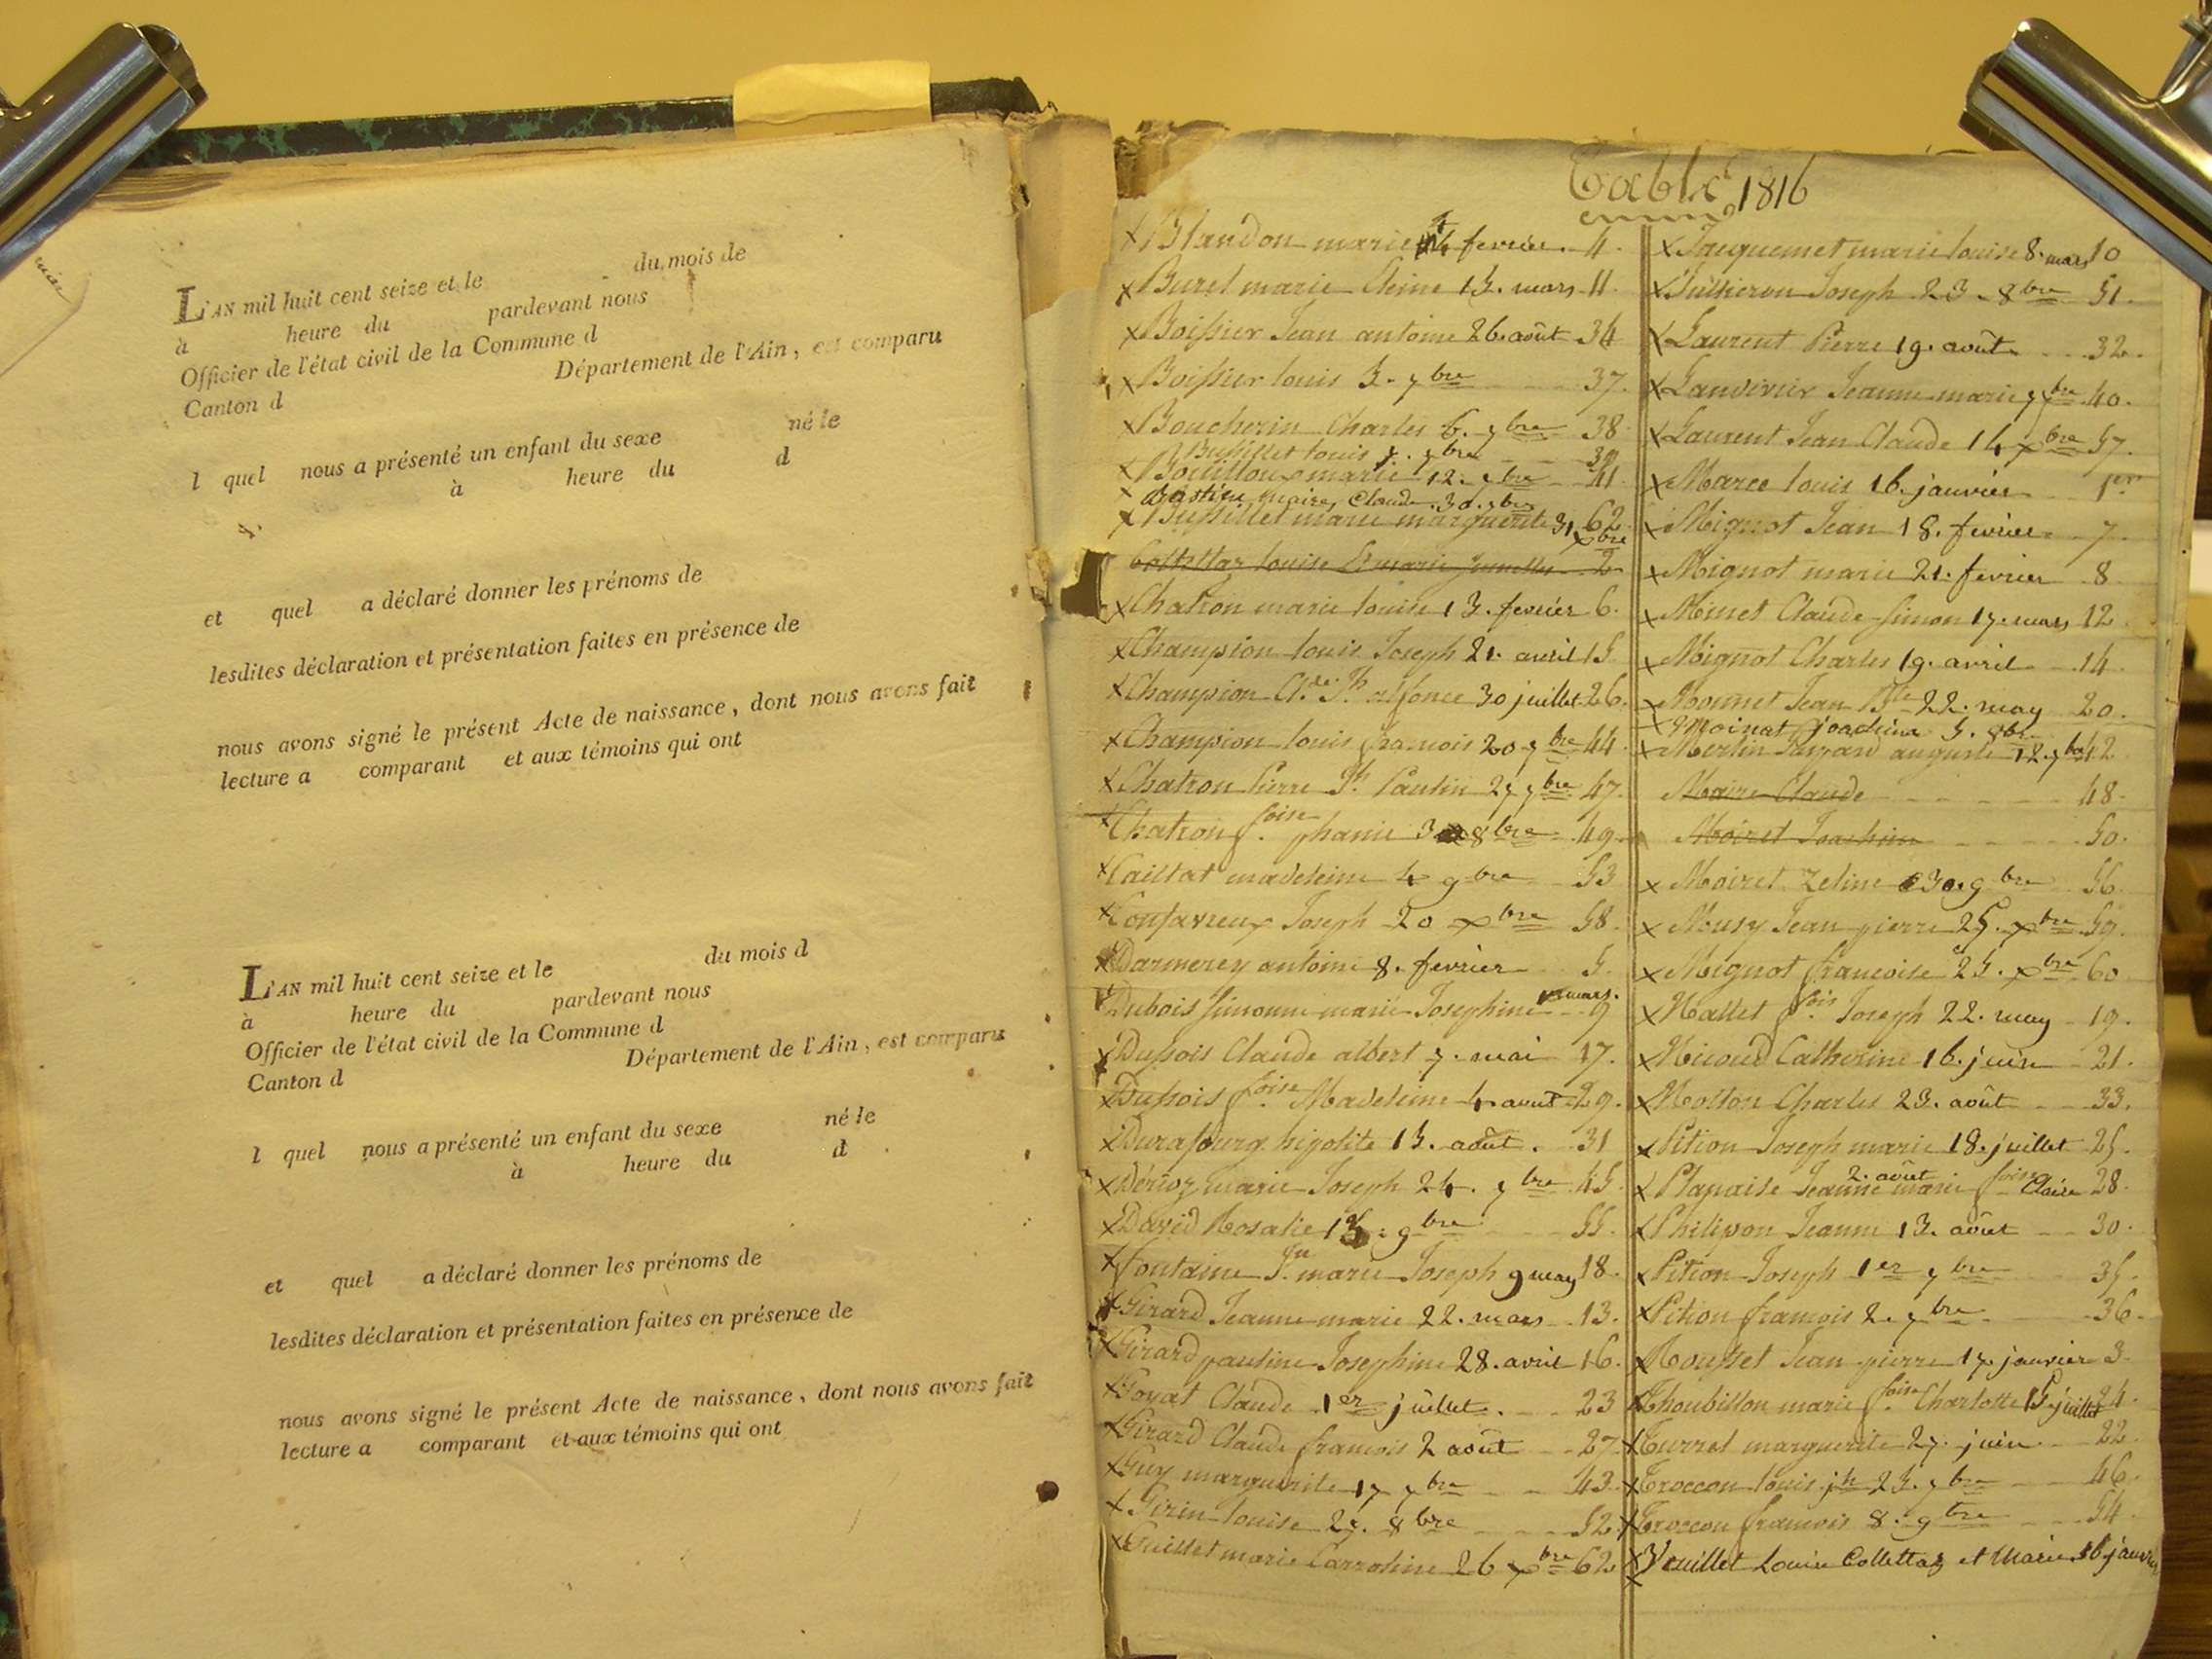 L'AN mil huit cent seize et le du mois de
à heure du pardevant nous
Officier de l'état civil de la Commune d
Canton d Département de l'Ain, est comparu
l quel nous a présenté un enfant du sexe né le
à heure du d
et quel a déclaré donner les prénoms de
lesdites déclaration et présentation faites en présence de
nous avons signé le présent Acte de naissance, dont nous avons fait
lecture a comparant et aux témoins qui ont
L'AN mil huit cent seize et le du mois d
à heure du pardevant nous
Officier de l'état civil de la Commune d
Canton d Département de l'Ain, est comparu
l quel nous a présenté un enfant du sexe né le
à heure du d
et quel a déclaré donner les prénoms de
lesdites déclaration et présentation faites en présence de
nous avons signé le présent Acte de naissance, dont nous avons fait
lecture a comparant et aux témoins qui ont
Table 1816
x Blandon marie fevrier. 4.
x Burel marie 13. mars 11.
x Boissier Jean antoine 26. août 34
x Boissier louis 3. 7bre 37.
x Boucherin Charles 6. 7bre 38
Bussillet louis 7. 7bre 39
x Bouillou marie 12. 7bre 41
x Bastien maire Claude 30. 7bre
x Bussillet marie marguerite 31 xbre 62
Collettaz louise & marie jumelles 2
x Chatron marie louise 13. fevrier 6.
x Champion louis Joseph 21. avril 15
x Champion Cl.de Jh alfonce 30 juillet 26.
x Champion louis francois 20 7bre 44
x Chatron Pierre Jh Paulin 27 7bre 47.
x Chatron f.oise phanie 3 8bre 49
x Caillat madeleine 4 9bre 53
x Confavreux Joseph 20 xbre 58.
x Darmerey antoine 8. fevrier 5.
x Dubois Simonne marie Josephine 1 mars. 9
x Dussois Claude albert 7. mai 17.
x Dussois f.oise Madeleine 4. aout 29.
x Durafourg hipolite 13. août. 31
x Dérioz marie Joseph 24. 7bre 45.
x David Rosalie 13. 9bre 55.
x fontaine Jn marie Joseph 9 may 18.
x Girard Jeanne marie 22. mars 13.
x Girard pauline Josephine 28. avril 16.
x Goyat Claude 1er juillet. 23
x Girard Claude francois 2 août 27
x Guy marguerite 17 7bre 43
x Girin louise 27. 8bre 52
x Guillet marie Carroline 26 xbre 62
x Jacquemet marie louise 8. mars 10
x Juilleron Joseph 23. 8bre 51.
x Laurent Pierre 19. août 32.
x Lanvernier Jeanne marie 7bre 40.
x Laurent Jean Claude 14 xbre 57.
x Marce louis 16. janvier 1er
x Mignot Jean 18. fevrier 7.
x Mignot marie 21. fevrier 8
x Minet Claude Simon 17. mars 12
x Mignot Charles 19. avril 14
x Monnet Jean Bte 22. may 20.
x Moinat Joachim 5. 8bre
x Merlin auguste 12. 7bre 42
Maire Claude 48.
Moiret Joachim 50.
x Moiret Zeline 30. 9bre 56
x Musy Jean pierre 25. xbre 59.
x Mignot francoise 25. xbre 60
x Nallet f.ois Joseph 22. may 19.
x Nicoud Catherine 16. juin 21.
x Notton Charles 23. août 33.
x Pition Joseph marie 18. juillet 25.
x Plapaise Jeanne marie foise Claire 2. août 28.
x Philipon Jeanne 13. août 30.
x Pition Joseph 1er 7bre 35.
x Pition francois 2. 7bre 36.
x Rousset Jean pierre 17. janvier 3
x Thoubillon marie f.oise Charlotte 15. juillet 24.
x Turrel marguerite 27. juin 22
x Troccon louis jh 25. 7bre 46.
x Troccon francois 8. 9bre 54.
x Vouillet Louise Collettaz et Marie 16 janvier